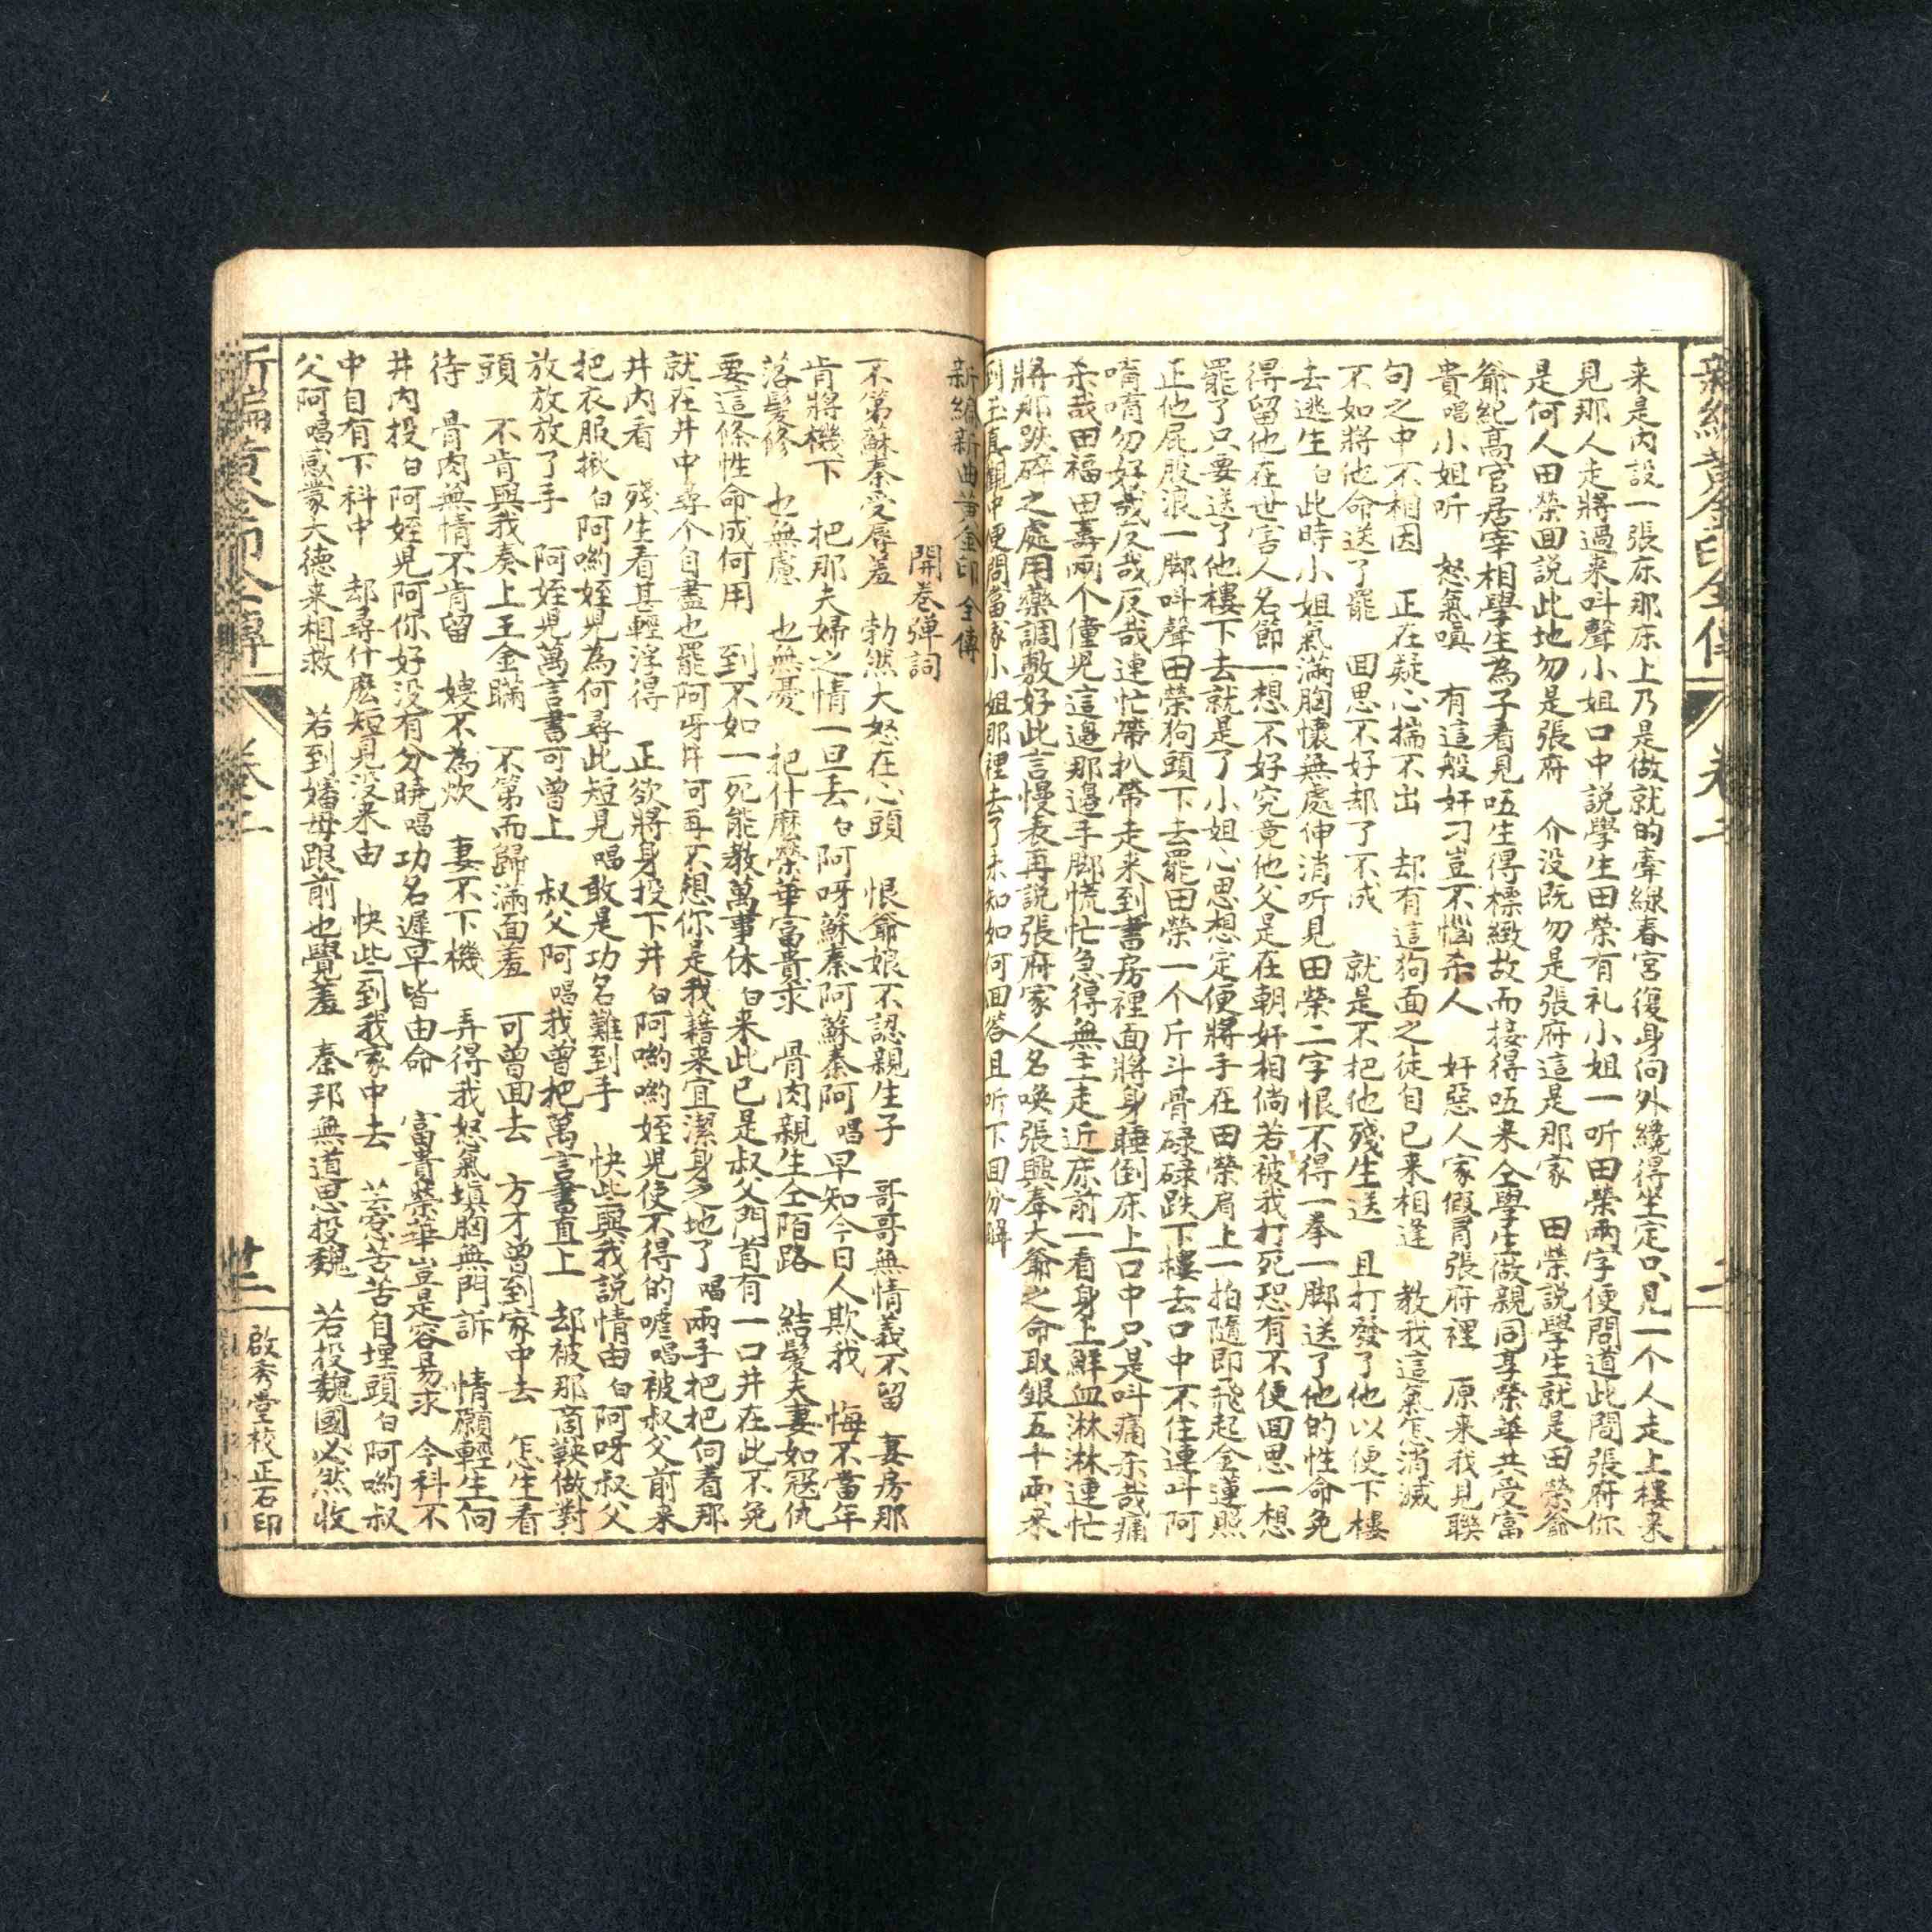 新編黃金印全傳 卷二 二
来是内設一張床那床上乃是做就的牽線春宮復身向外纔得坐定只見一个人走上樓来
見那人走將過来叫聲小姐口中説學生田榮有礼小姐一听田榮兩字便問道此間張府你
是何人田榮回説此地勿是張府 介没既勿是張府這是那家 田榮説學生就是田榮爺
爺紀高官居宰相學生為子看見唔生得標緻故而接得唔来仝學生做親同享榮華共受富
貴唱小姐听 怒氣嗔 有這般奸刁豈不惱杀人 奸惡人家假冒張府裡 原来我見聯
句之中不相因 正在疑心揣不出 却有這狗面之徒自已来相逢 教我這氣怎消滅
不如將他命送了罷 回思不好却了不成 就是不把他殘生送 且打發了他以便下樓
去逃生白此時小姐氣滿胸懷無處伸消听見田榮二字恨不得一拳一脚送了他的性命免
得留他在世害人名節一想不好究竟他父是在朝奸相倘若被我打死恐有不便回思一想
罷了只要送了他樓下去就是了小姐心思想定便將手在田榮肩上一拍隨即飛起金蓮照
正他屁股浪一脚叫聲田榮狗頭下去罷田榮一个斤斗骨碌碌跌下樓去口中不住連叫阿
唷唷勿好哉反哉反哉連忙帶扒帶走来到書房裡面將身睡倒床上口中只是叫痛杀哉痛
杀哉田福田壽兩个僮児這邉那邉手脚慌忙急得無主走近床前一看身上鮮血淋淋連忙
將那跌碎之處用藥調敷好此言慢表再説張府家人名唤張興奉大爺之命取銀五十両来
到玉真觀中便問當家小姐那裡去了未知如何回答且听下回分解
新編新曲黃金印全傳
開卷彈詞
不第蘇秦受辱羞 勃然大怒在心頭 恨爺娘不認親生子 哥哥無情義不留 妻房那
肯將機下 把那夫婦之情一旦丢白阿呀蘇秦阿蘇秦阿唱早知今日人欺我 悔不當年
落髮修 也無慮 也無憂 把什麽榮華富貴求 骨肉親生仝陌路 結髮夫妻如冦仇
要這條性命成何用 到不如一死能教萬事休白来此已是叔父門首有一口井在此不免
就在井中尋个自盡也罷阿呀井阿再不想你是我蘇来宜潔身之地了唱兩手把把向着那
井内看 殘生看甚輕浮得 正欲將身投下井白阿喲喲姪児使不得的嚄唱被叔父前来
把衣服揪白阿喲姪児為何尋此短見唱敢是功名難到手 快些與我説情由白阿呀叔父
放放放了手 阿姪児萬言書可曾上 叔父阿唱我曾把萬言書直上 却被那商鞅做對
頭 不肯與我奏上王金瞞 不第而歸滿面羞 可曾回去 方才曾到家中去 怎生看
待 骨肉無情不肯留 嫂不為炊 妻不下機 弄得我怒氣填胸無門訴 情願輕生向
井内投白阿姪児阿你好没有分曉唱功名遲早皆由命 富貴榮華豈是容易求 今科不
中自有下科中 却尋什麽短見没来由 快些到我家中去 苦惱苦苦自埋頭白阿喲叔
父阿唱感蒙大德来相救 若到嬸母跟前也覺羞 秦邦無道思投魏 若投魏國必然收
新編黃金印全傳 卷二 廿二
啟秀堂校正石印